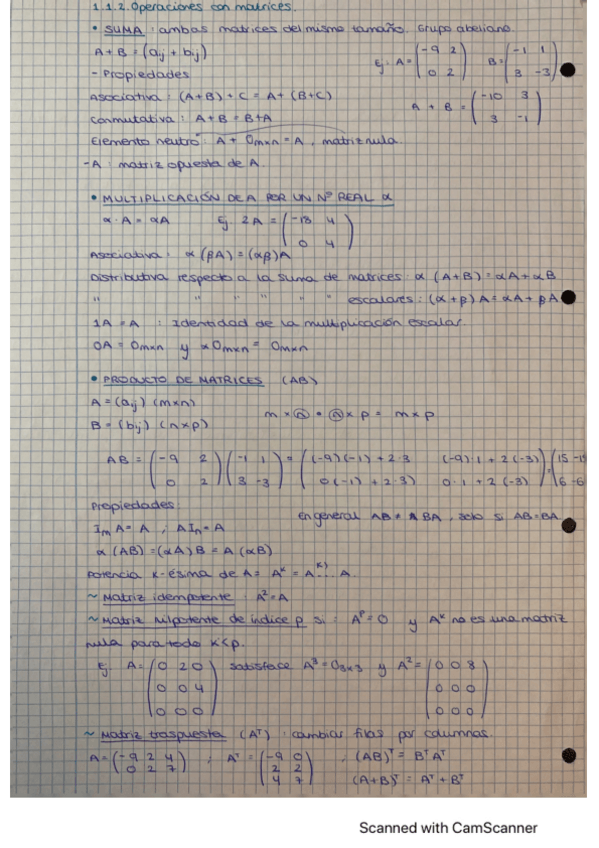 1.1.2. Operaciones con matrices.
• SUMA: ambas matrices del mismo tamaño. Grupo abeliano.
A+B = (aij + bij)   Ej. A = (-9 2 / 0 2)   B = (-1 1 / 3 -3)
- Propiedades
Asociativa: (A+B)+C = A+(B+C)   A + B = (-10 3 / 3 -1)
Conmutativa: A+B = B+A
Elemento neutro: A + 0mxn = A, matriz nula.
-A: matriz opuesta de A.
• MULTIPLICACIÓN DE A POR UN Nº REAL α
α·A = αA   Ej. 2A = (-18 4 / 0 4)
Asociativa: α(βA) = (αβ)A
Distributiva respecto a la suma de matrices: α(A+B) = αA + αB
" " " " " " escalares: (α+β)A = αA + βA
1A = A : Identidad de la multiplicación escalar.
0A = 0mxn y α0mxn = 0mxn
• PRODUCTO DE MATRICES (AB)
A = (aij) (mxn)
B = (bij) (nxp)   m x n · n x p = m x p
AB = (-9 2 / 0 2) (-1 1 / 3 -3) = ((-9)(-1) + 2·3   (-9)·1 + 2(-3) / 0(-1) + 2·3)   0·1 + 2(-3)) = (15 -15 / 6 -6
Propiedades:   En general AB ≠ BA, solo si AB=BA
Im A = A ; A In = A
α(AB) = (αA)B = A(αB)
Potencia k-ésima de A = Aᵏ = A ᵏ⁾... A.
~ Matriz idempotente: A² = A
~ Matriz nilpotente de índice p si: Aᵖ = 0 y Aᵏ no es una matriz
nula para todo k<p.
Ej. A = (0 2 0 / 0 0 4 / 0 0 0) satisface A³ = 03x3 y A² = (0 0 8 / 0 0 0 / 0 0 0)
~ Matriz traspuesta (Aᵀ): cambiar filas por columnas.
A = (-9 2 4 / 0 2 7) ; Aᵀ = (-9 0 / 2 2 / 4 7) ; (AB)ᵀ = BᵀAᵀ
(A+B)ᵀ = Aᵀ + Bᵀ
Scanned with CamScanner